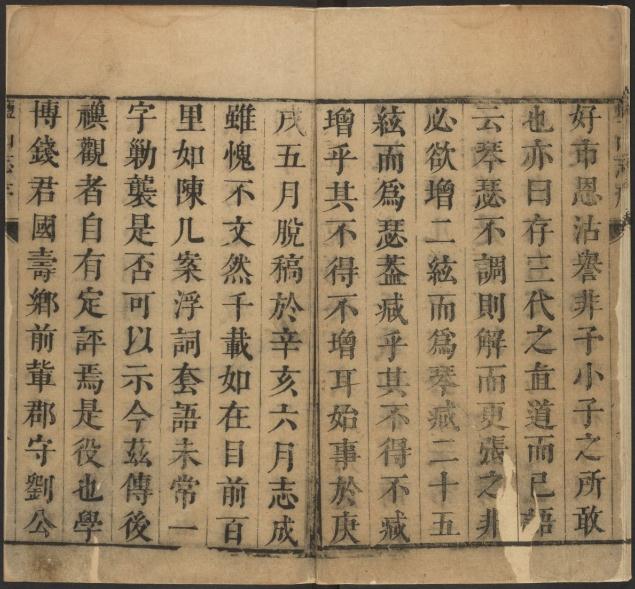 好市恩沽譽非予小子之所敢
也亦曰存三代之直道而已語
云琴瑟不調則解而更張之非
必欲增二絃而爲琴減二十五
絃而爲瑟葢減乎其不得不減
增乎其不得不增耳始事於庚
戌五月脫稿於辛亥六月志成
雖愧不文然千載如在目前百
里如陳几案浮詞套語未常一
字勦襲是否可以示今茲傳後
禩觀者自有定評焉是役也學
博錢君國壽鄉前輩郡守劉公